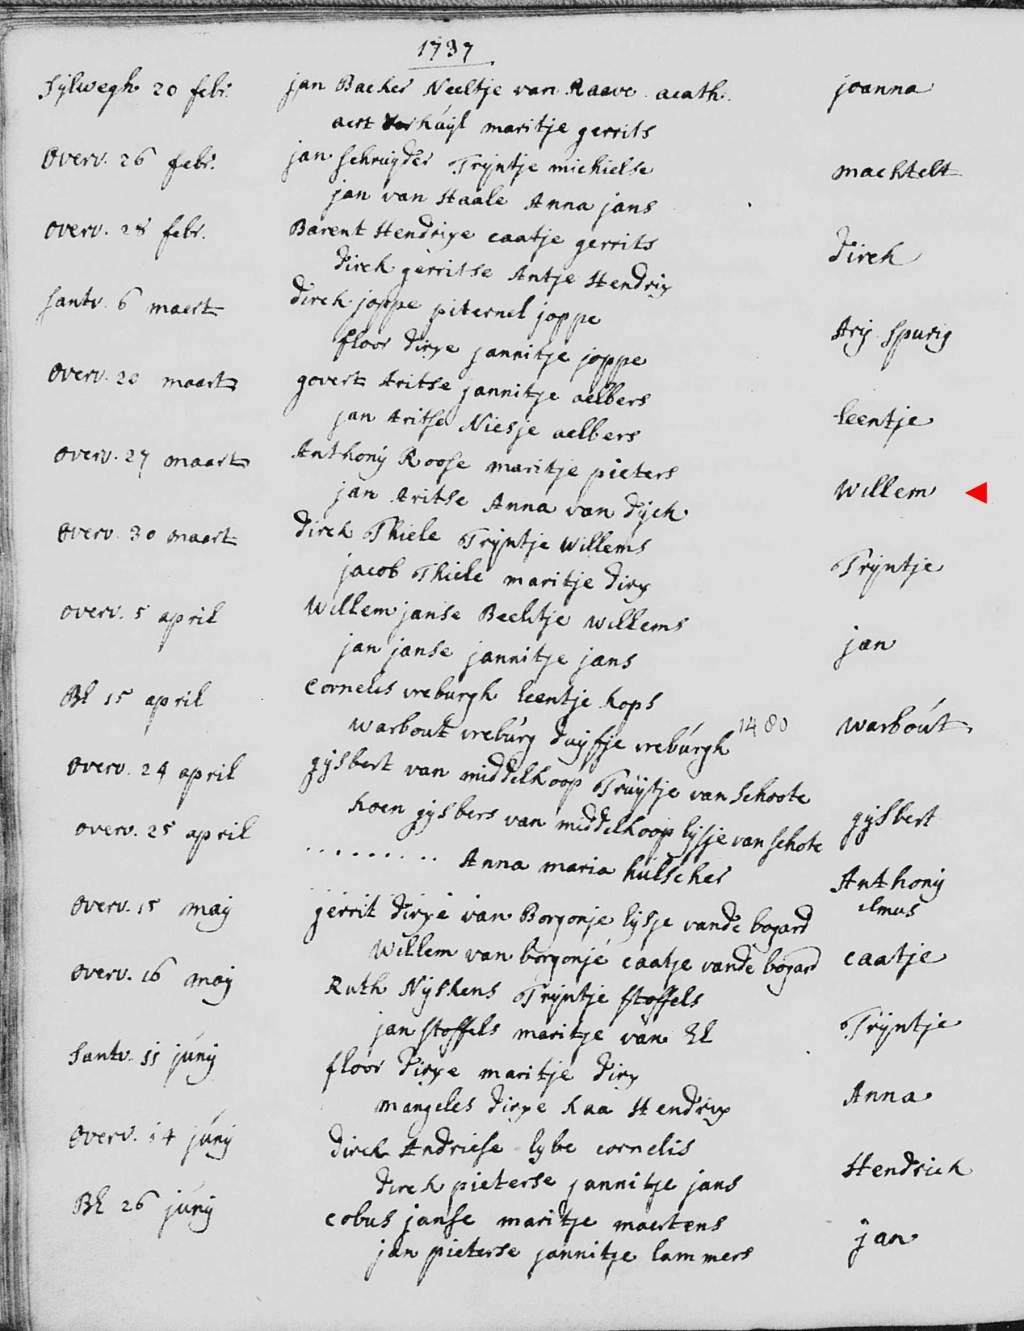 1737
Sylwegh 20 febr. jan Backer Neeltje van Raave acath. joanna
aert verhúÿl maritje gerrits
Overv. 26 febr. jan schruyder Trijntje michielse machtelt
jan van Haale Anna jans
overv. 28 febr. Barent Hendrixe caatje gerrits dirck
dirck gerritse Antje Hendrix
santv. 6 maert dirck joppe piternel joppe Arij spurig
floor dirxe jannitje joppe
Overv. 20 maart govert Aritse jannitje aelbers leentje
jan Aritse Niesje aelbers
overv. 27 maart Anthonÿ Roose maritje pieters Willem
jan Aritse Anna van dÿck
Overv. 30 maart dirck Thiele Trijntje Willems Trijntje
jacob Thiele maritje dirx
overv. 5 april Willem janse Beeltje Willems jan
jan janse jannitje jans
Bl 15 april cornelis vreburgh leentje kops warboút
warbout vrebúrg duÿfje vrebúrgh 1480
Overv. 24 april gijsbert van middelkoop Trúÿtje van schoote gijsbert
koen gijsbers van middelkoop lijsje van schote
overv. 25 april . . . . . . . . . Anna maria hulscher Anthonÿ
ilmus
Overv. 15 maij gerrit dirxe van Borgonje lijsje vande bogard caatje
Willem van borgonjé caatje vande bogard
overv. 16 maij Ruth Nÿskens Trijntje stoffels Trijntje
jan stoffels maritje van El
santv. 11 júnij floor dirxe maritje dirx Anna
mangeles dirxe kaa Hendrix
Overv. 14 júnij dirck Andriese lybe cornelis Hendrick
dirck pieterse jannitje jans
Bl 26 júnij cobus janse maritje maertens jan
jan pieterse jannitje lammers